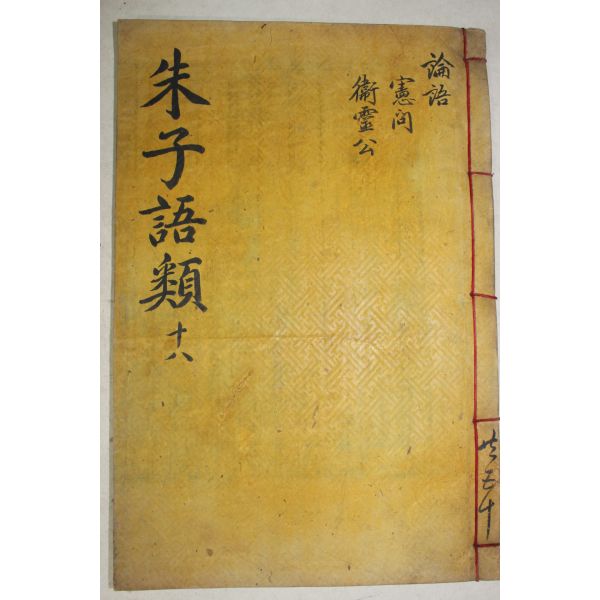 論語
憲问
衛靈公
朱子語類 十八
共五十